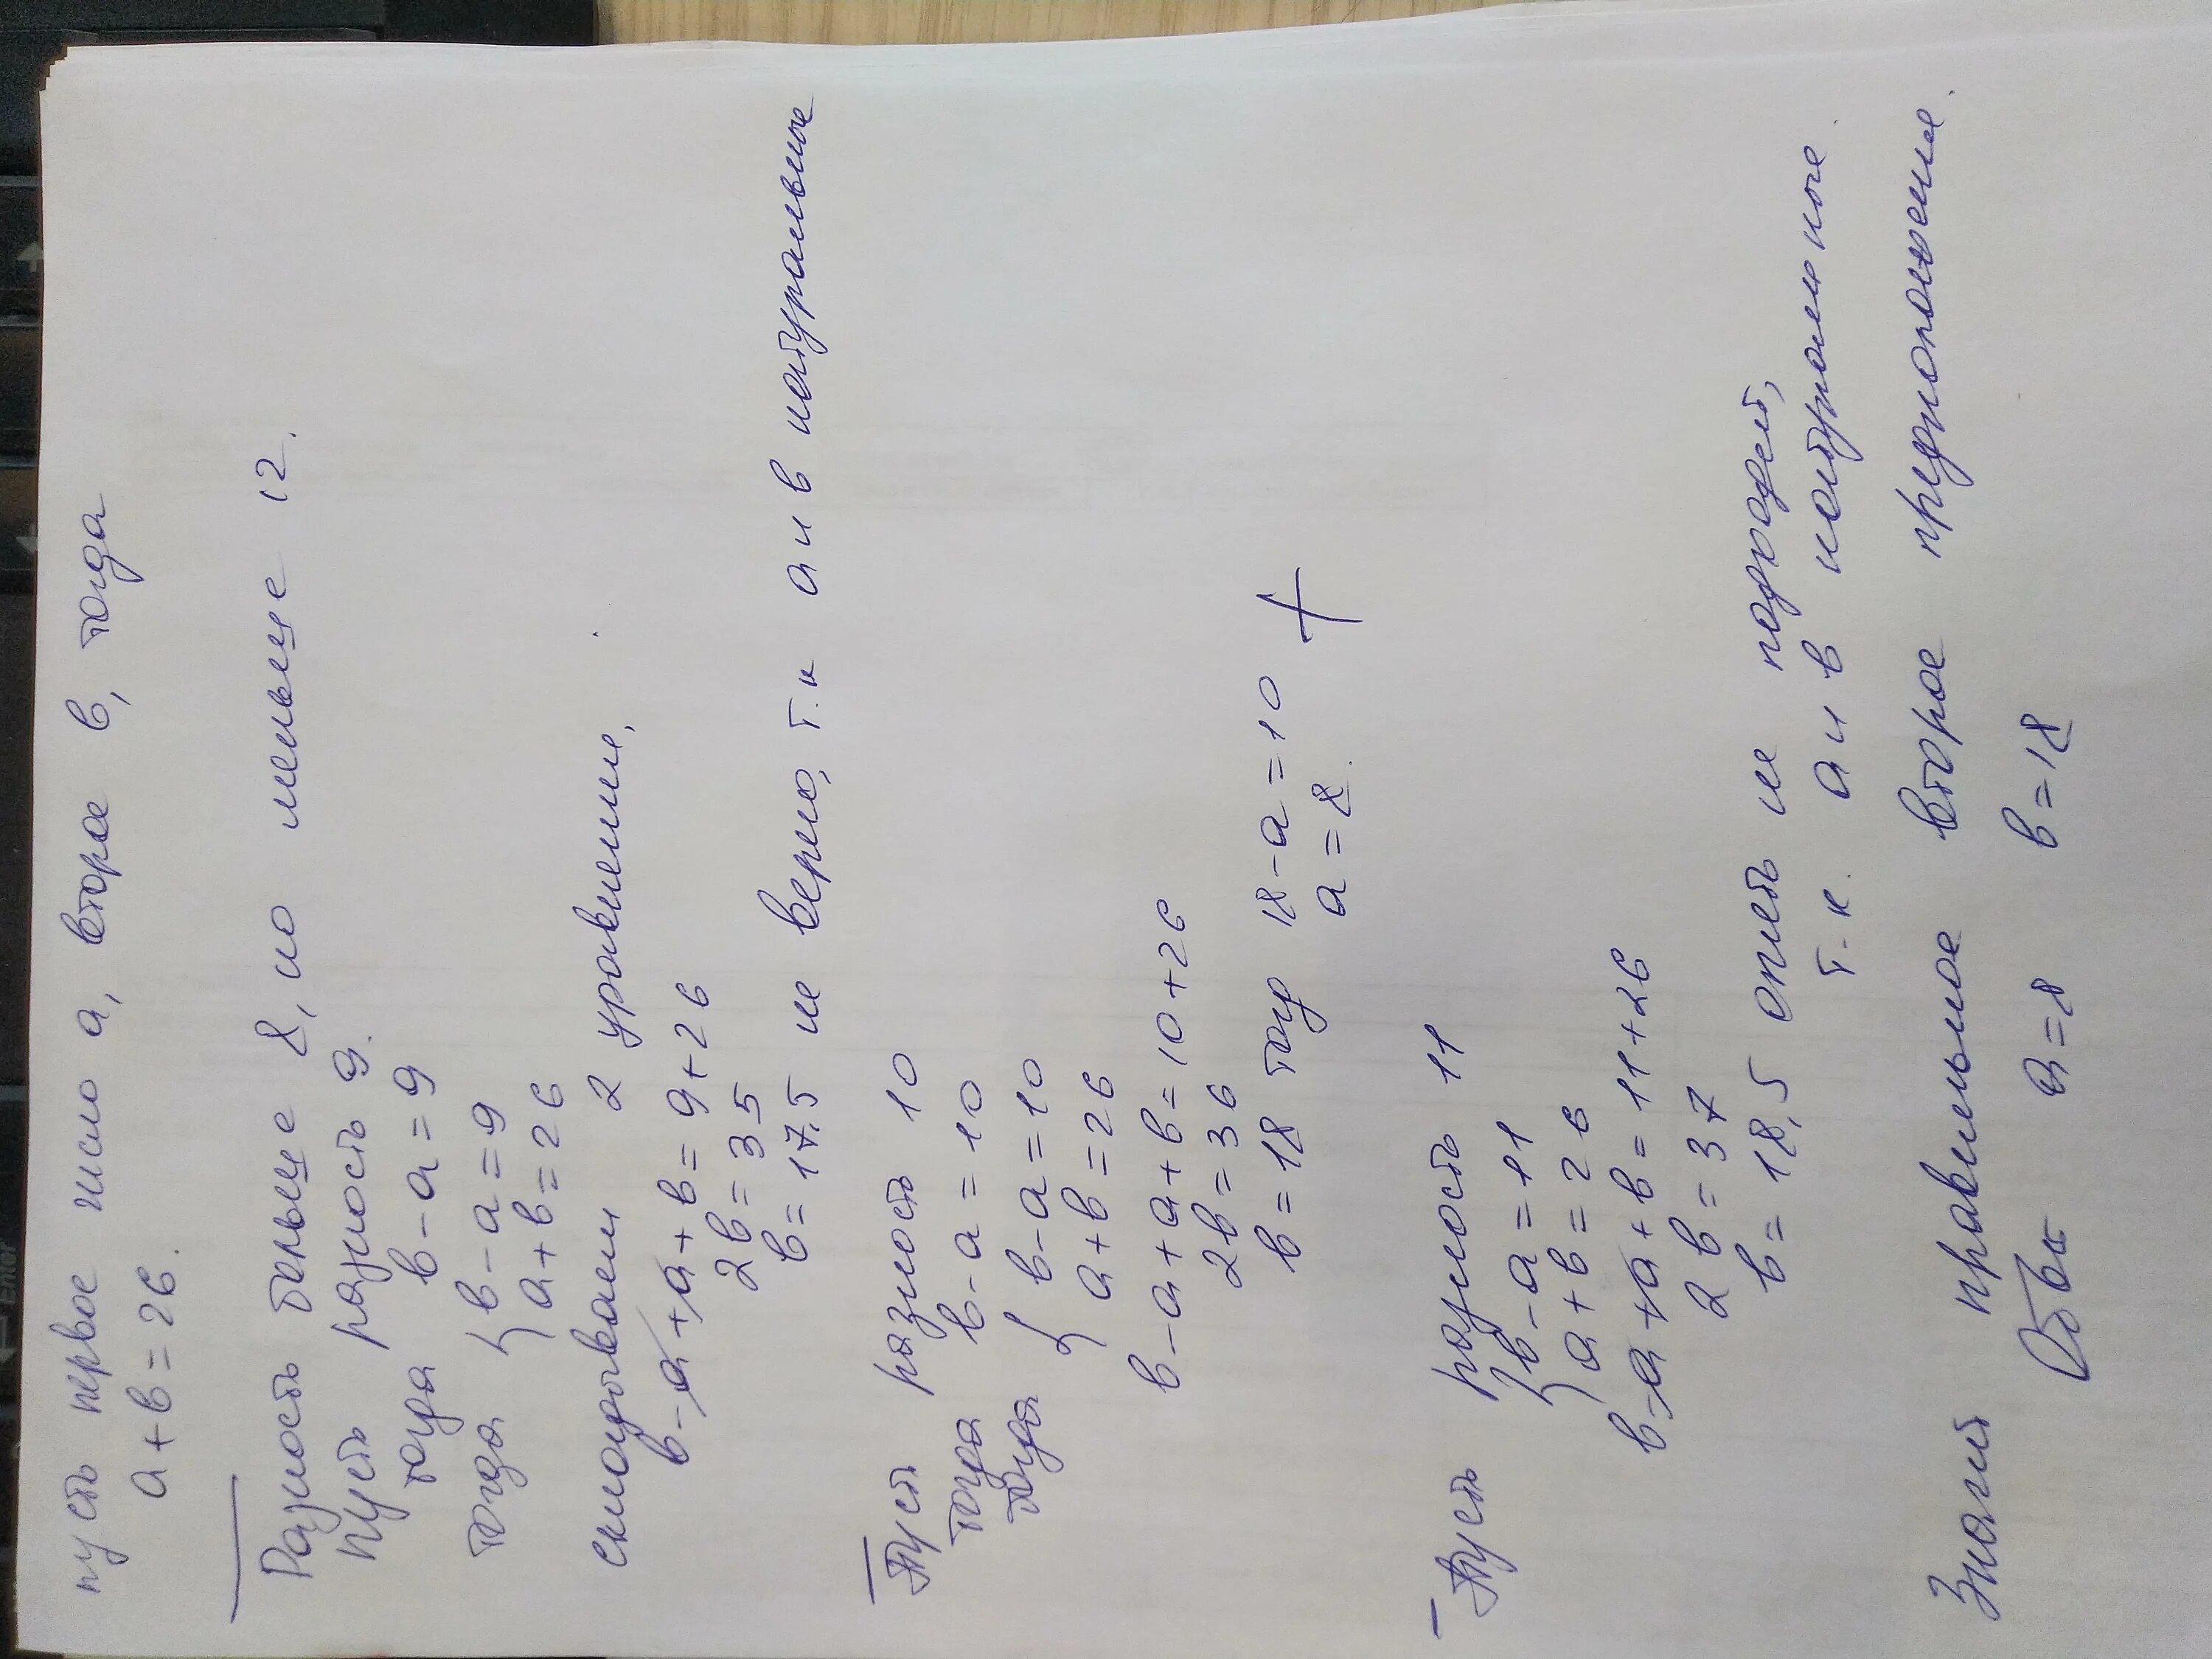 пусть первое число а, второе в, тогда
а + в = 26.
Разность больше 8, но меньше 12.
Пусть разность 9.
тогда в - а = 9
тогда { в - а = 9
а + в = 26
складываем 2 уравнения,
в - а + а + в = 9 + 26
2в = 35
в = 17.5 не верно, т.к а и в натуральные
Пусть разность 10
тогда в - а = 10
тогда { в - а = 10
а + в = 26
в - а + а + в = 10 + 26
2в = 36
в = 18 тогд 18 - а = 10
а = 8. +
Пусть разность 11
{ в - а = 11
а + в = 26
в - а + а + в = 11 + 26
2в = 37
в = 18,5 опять не подходит,
т.к. а и в натуральные.
Значит правильное второе предположение.
а = 8 в = 18
Enter